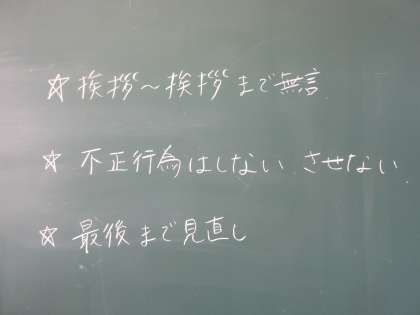 ☆挨拶〜挨拶まで無言
☆不正行為はしない、させない
☆最後まで見直し